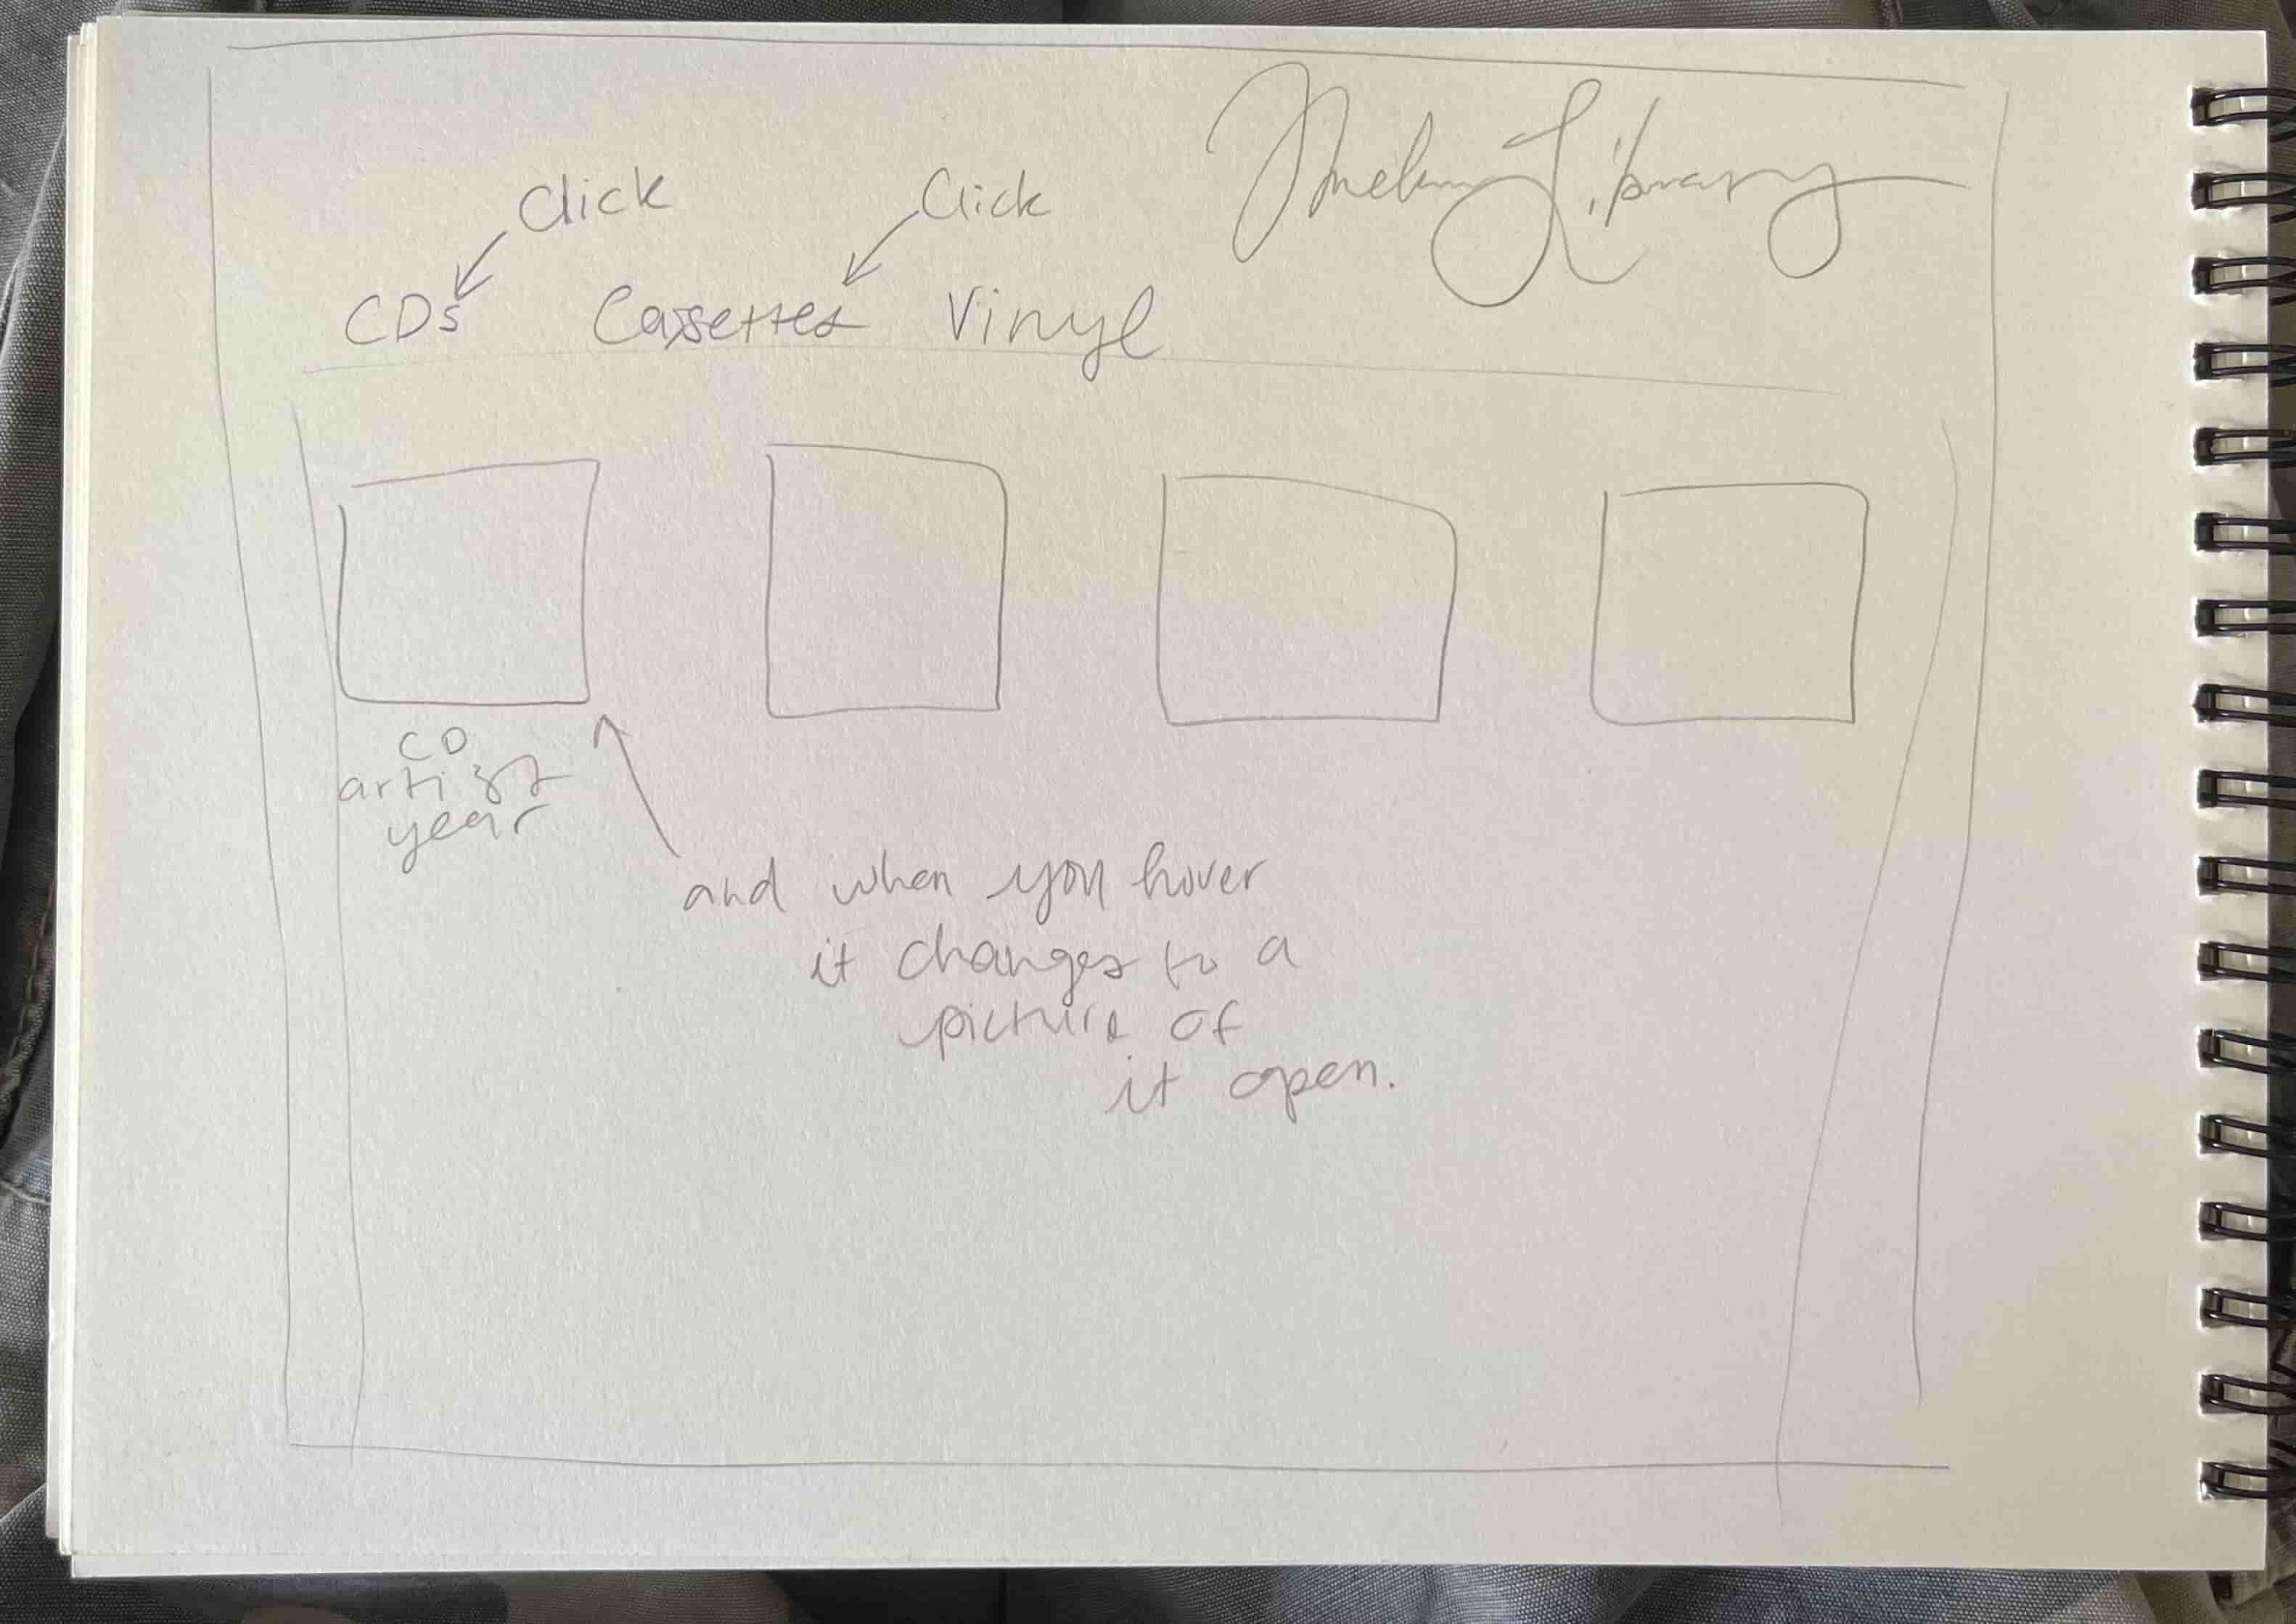 Click
Click
Library
CDs Cassettes Vinyl
CD
artist
year
and when you hover
it changes to a
picture of
it open.